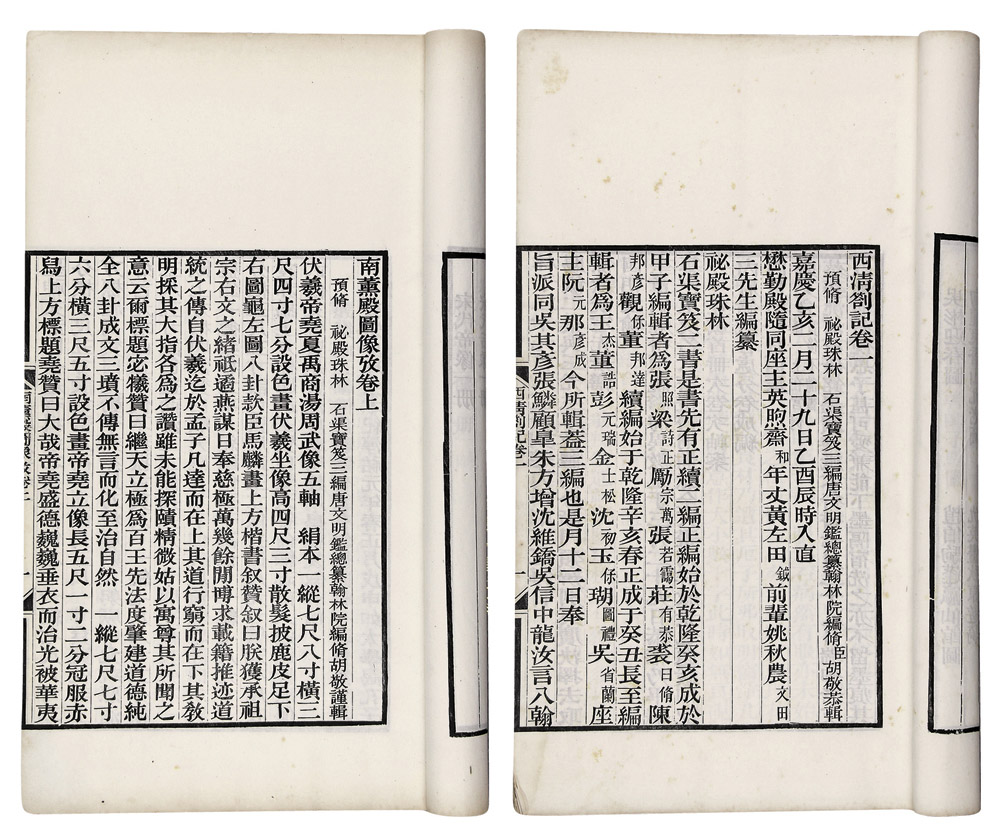 西清劄記卷一
預脩　祕殿珠林　石渠寶笈三編唐文明鑑總纂翰林院編脩臣胡敬恭輯
嘉慶乙亥二月二十九日乙酉辰時入直
懋勤殿隨同座主英煦齋和年丈黃左田鉞前輩姚秋農文田
三先生編纂
祕殿珠林
石渠寶笈二書是書先有正續二編正編始於乾隆癸亥成於
甲子編輯者爲張照梁詩正勵宗萬張若靄莊有恭裘日脩陳
邦彥觀保董邦達續編始于乾隆辛亥春正成于癸丑長至編
輯者爲王杰董誥彭元瑞金士松沈初玉保瑚圖禮吳省蘭座
主阮元那彥成今所輯蓋三編也是月十二日奉
旨派同吳其彥張鱗顧皋朱方增沈維鐈吳信中龍汝言八翰
西清劄記卷一
一
南薰殿圖像攷卷上
預脩　祕殿珠林　石渠寶笈三編唐文明鑑總纂翰林院編脩胡敬謹輯
伏羲帝堯夏禹商湯周武像五軸　絹本一縱七尺八寸橫三
尺四寸七分設色畫伏羲坐像高四尺三寸散髮披鹿皮足下
右圖龜左圖八卦款臣馬麟畫上方楷書叙贊叙曰朕獲承祖
宗右文之緒祗遹燕謀日奉慈極萬幾餘閒博求載籍推迹道
統之傳自伏羲迄於孟子凡達而在上其道行窮而在下其敎
明採其大指各爲之讚雖未能探賾精微姑以寓尊其所聞之
意云爾標題宓犧贊曰繼天立極爲百王先法度肇建道德純
全八卦成文三墳不傳無言而化至治自然　一縱七尺七寸
六分橫三尺五寸設色畫帝堯立像長五尺一寸二分冠服赤
舄上方標題堯贊曰大哉帝堯盛德巍巍垂衣而治光被華夷
南薰殿圖像攷卷上
一